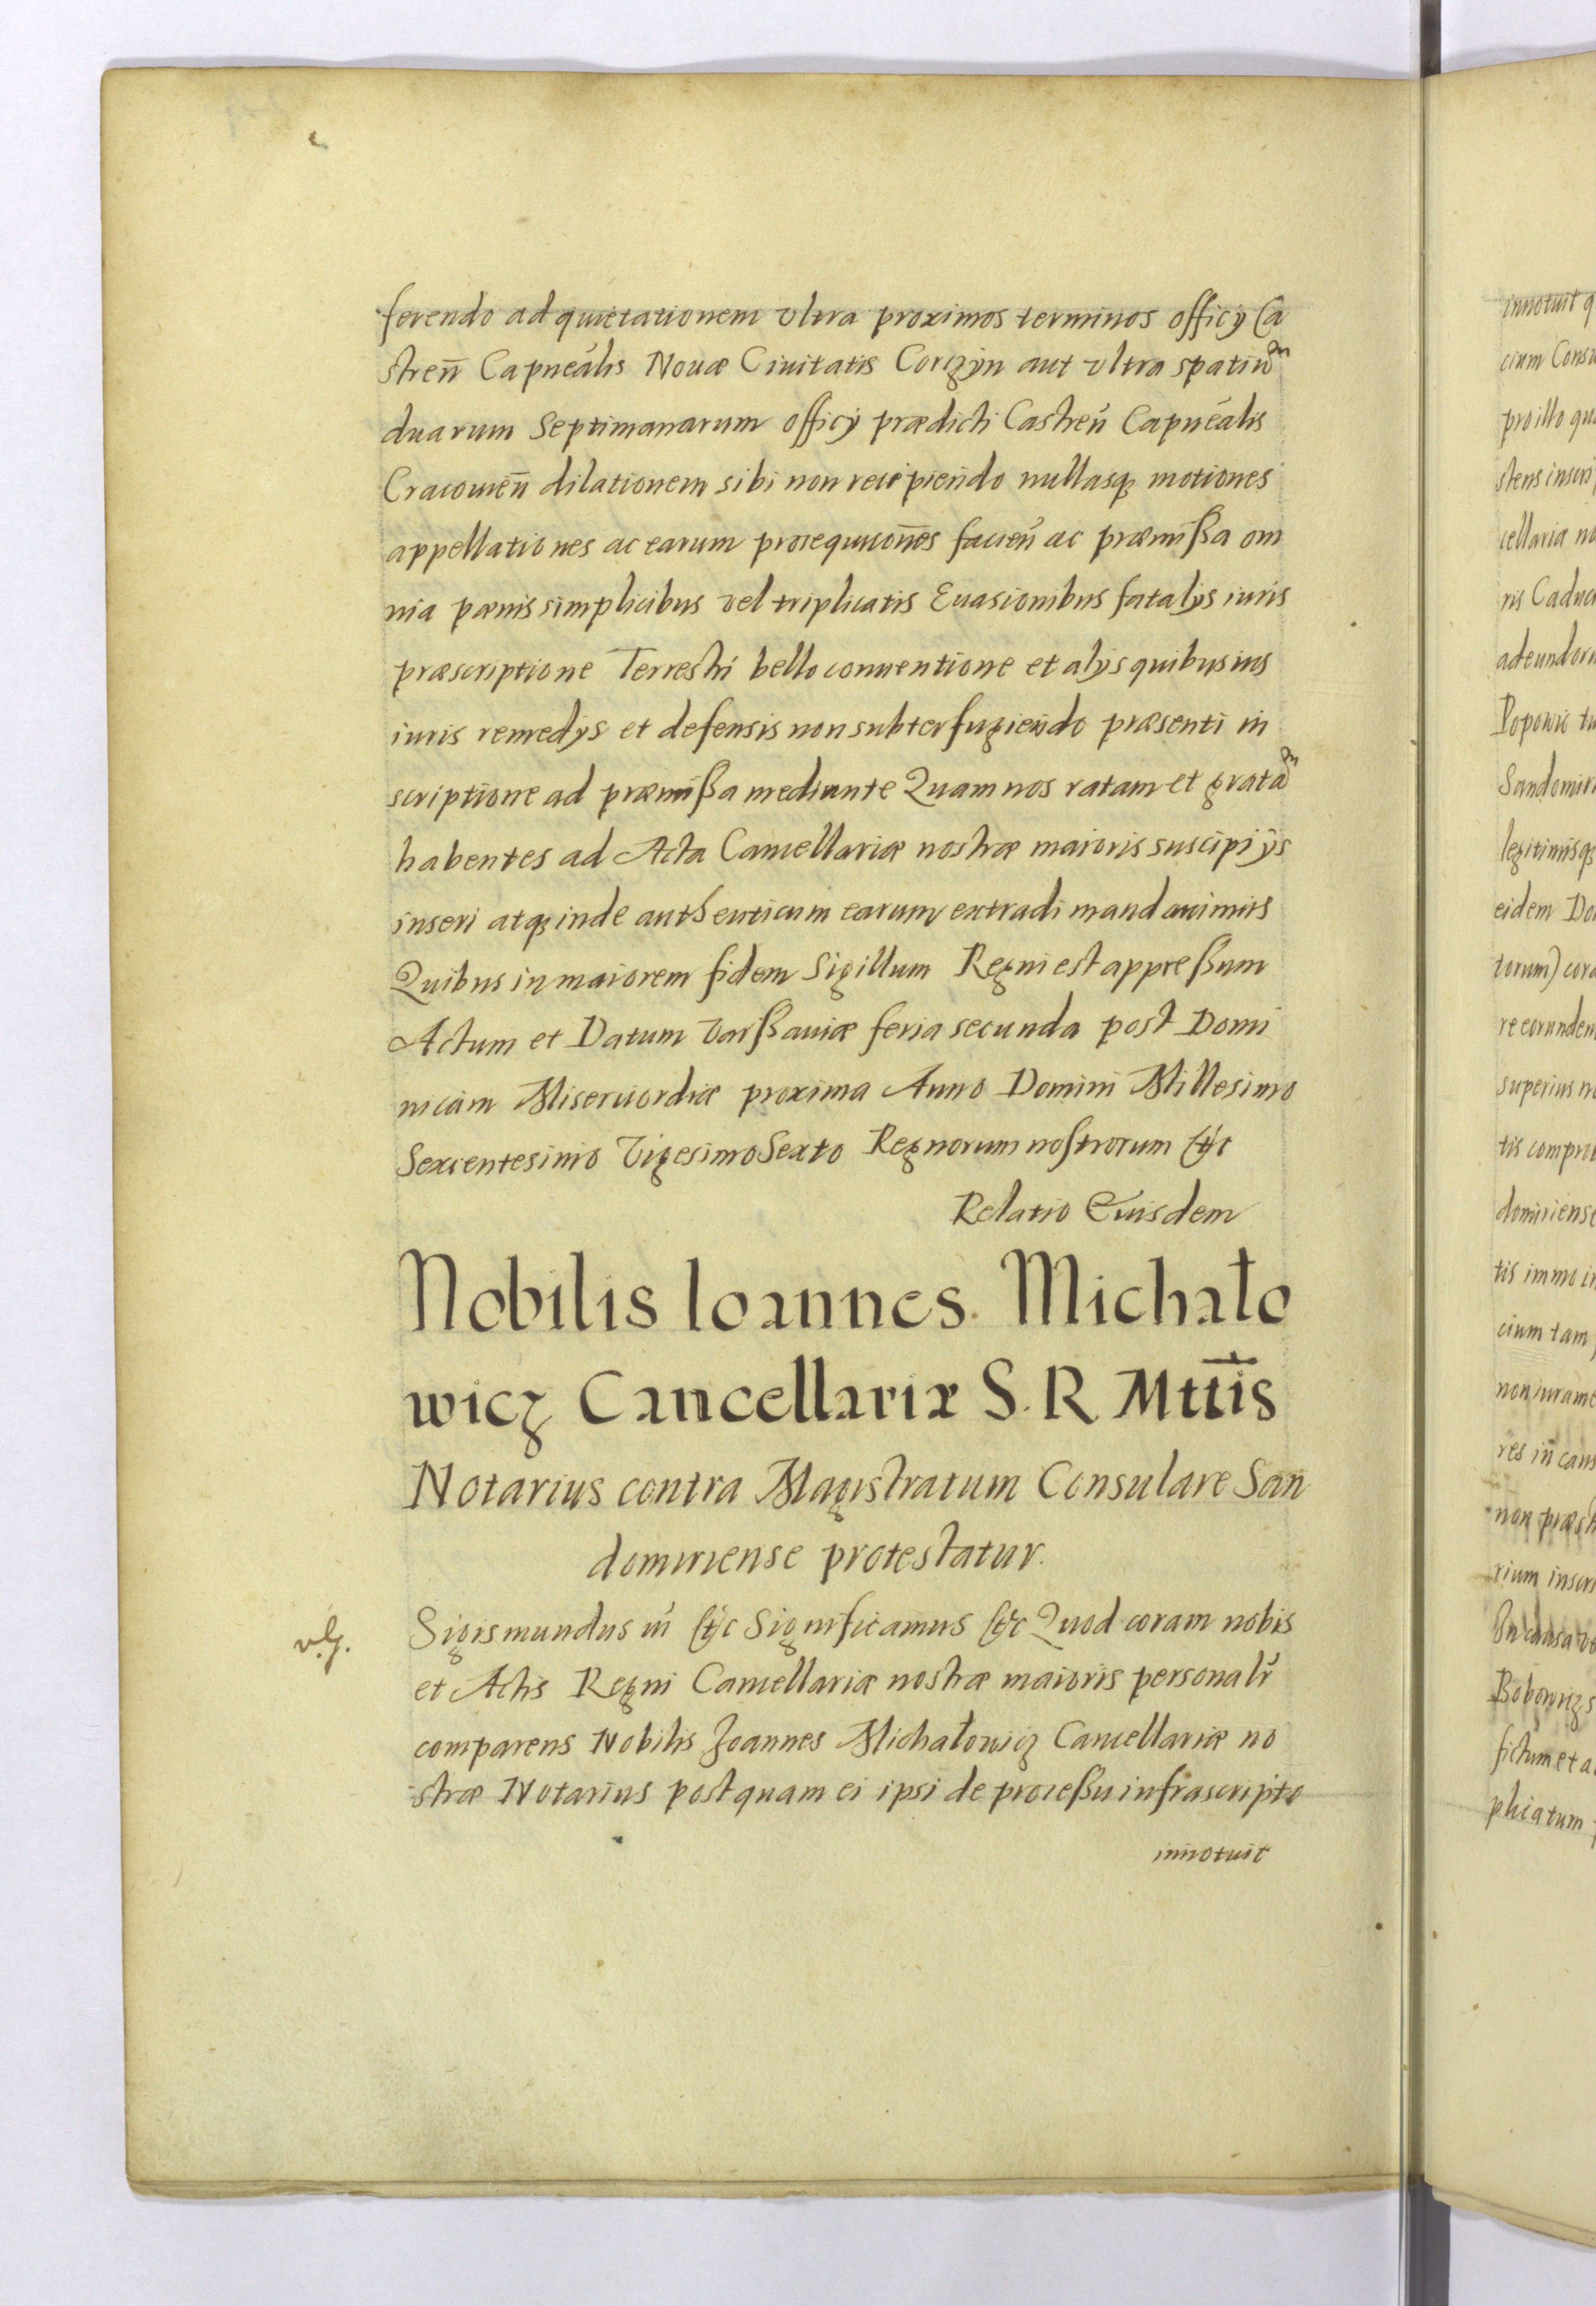 ferendo ad quietationem vltra proximos terminos officÿ Ca
streñ Capneális Nouæ Ciuitatis Corczÿn aut vltra spatiũ
duarum Septimanarum officÿ prædicti Castreñ Capneális
Cracouieñ dilationem sibi non recipiendo nullasq motiones
appellationes ac earum prosequutiones facieñ ac præmißa om
nia pœnis simplicibus vel triplicatis Euasionibus fatalÿs iuris
præscriptione Terrestri bello conuentione et alÿs quibusuis
iuris remedÿs et defensis non subterfugiendo præsenti in
scriptione ad præmißa mediante Quam nos ratam et gratã
habentes ad Acta Cancellariæ nostræ maioris suscipi ÿs
inseri atq inde authenticum earum extradi mandauimus
Quibus in maiorem fidem Sigillum Regni est appreßum
Actum et Datum Varßauiæ feria secunda post Domi
nicam Misericordiæ proxima Anno Domini Millesimo
Sexcentesimo Vigesimo Sexto Regnorum nostrorum &c
Relatio Eiusdem
Nobilis Ioannes Michało
wicz Cancellariæ S. R. Mttis
Notarius contra Magistratum Consulare San
domiriense protestatur.
Sigismundus iii &c Significamus &c Quod coram nobis
et Actis Regni Cancellariæ nostræ maioris personalr
comparens Nobilis Joannes Michałowicz Cancellariæ no
stræ Notarius postquam ei ipsi de proceßu infrascripto
innotuit
innotuit q
cium Consu
pro illo qu
stens inscri
cellaria no
ris Caduc
adeundoru
Popowic
Sandomir
legitimisq
eidem Do
torum) cora
re eorundem
superius n
tis compro
domiriense
tis immo in
cium tam
non iurame
res in caus
non præst
rium inscri
In causa
Bobowicz
fictum et a
plicatum